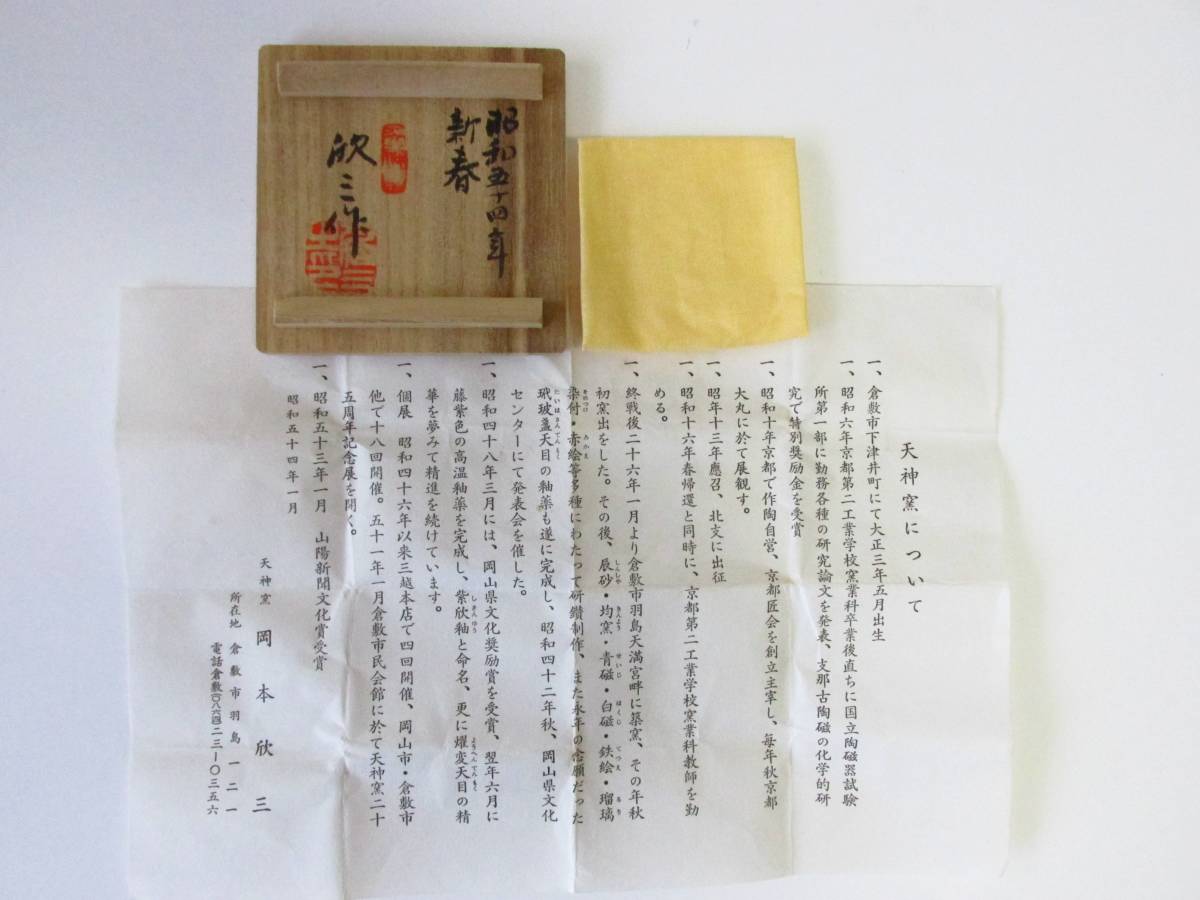 昭和五十四年
新春
欣三作
天神窯について
一、倉敷市下津井町にて大正三年五月出生
一、昭和六年京都第二工業学校窯業科卒業後直ちに国立陶磁器試験
所第一部に勤務各種の研究論文を発表、支那古陶磁の化学的研
究で特別奨励金を受賞
一、昭和十年京都で作陶自営、京都匠会を創立主宰し、毎年秋京都
大丸に於て展観す。
一、昭年十三年應召、北支に出征
一、昭和十六年春帰還と同時に、京都第二工業学校窯業科教師を勤
める。
一、終戦後二十六年一月より倉敷市羽島天満宮畔に築窯、その年秋
初窯出をした。その後、辰砂・均窯・青磁・白磁・鉄絵・瑠璃
染付・赤絵等多種にわたって研鑽制作、また永年の念願だった
玳玻盞天目の釉薬も遂に完成し、昭和四十二年秋、岡山県文化
センターにて発表会を催した。
一、昭和四十八年三月には、岡山県文化奨励賞を受賞、翌年六月に
藤紫色の高温釉薬を完成し、紫欣釉と命名、更に燿変天目の精
華を夢みて精進を続けています。
一、個展　昭和四十六年以来三越本店で四回開催、岡山市・倉敷市
他で十八回開催。五十一年一月倉敷市民会館に於て天神窯二十
五周年記念展を開く。
一、昭和五十三年一月　山陽新聞文化賞受賞
昭和五十四年一月
天神窯　岡本欣三
所在地　倉敷市羽島一二一
電話倉敷(〇八六四)二三ー〇三五六